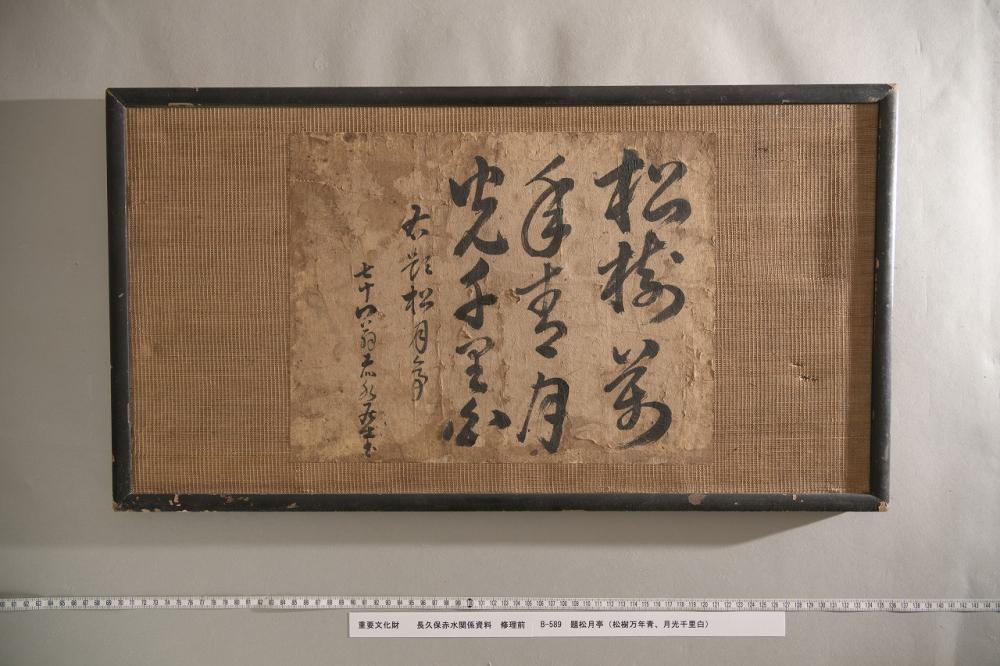 松樹萬
年青月
光千里白
右題松月亭
七十四翁赤水居士書
重要文化財 長久保赤水関係資料 修理前 B-589 題松月亭（松樹万年青、月光千里白）